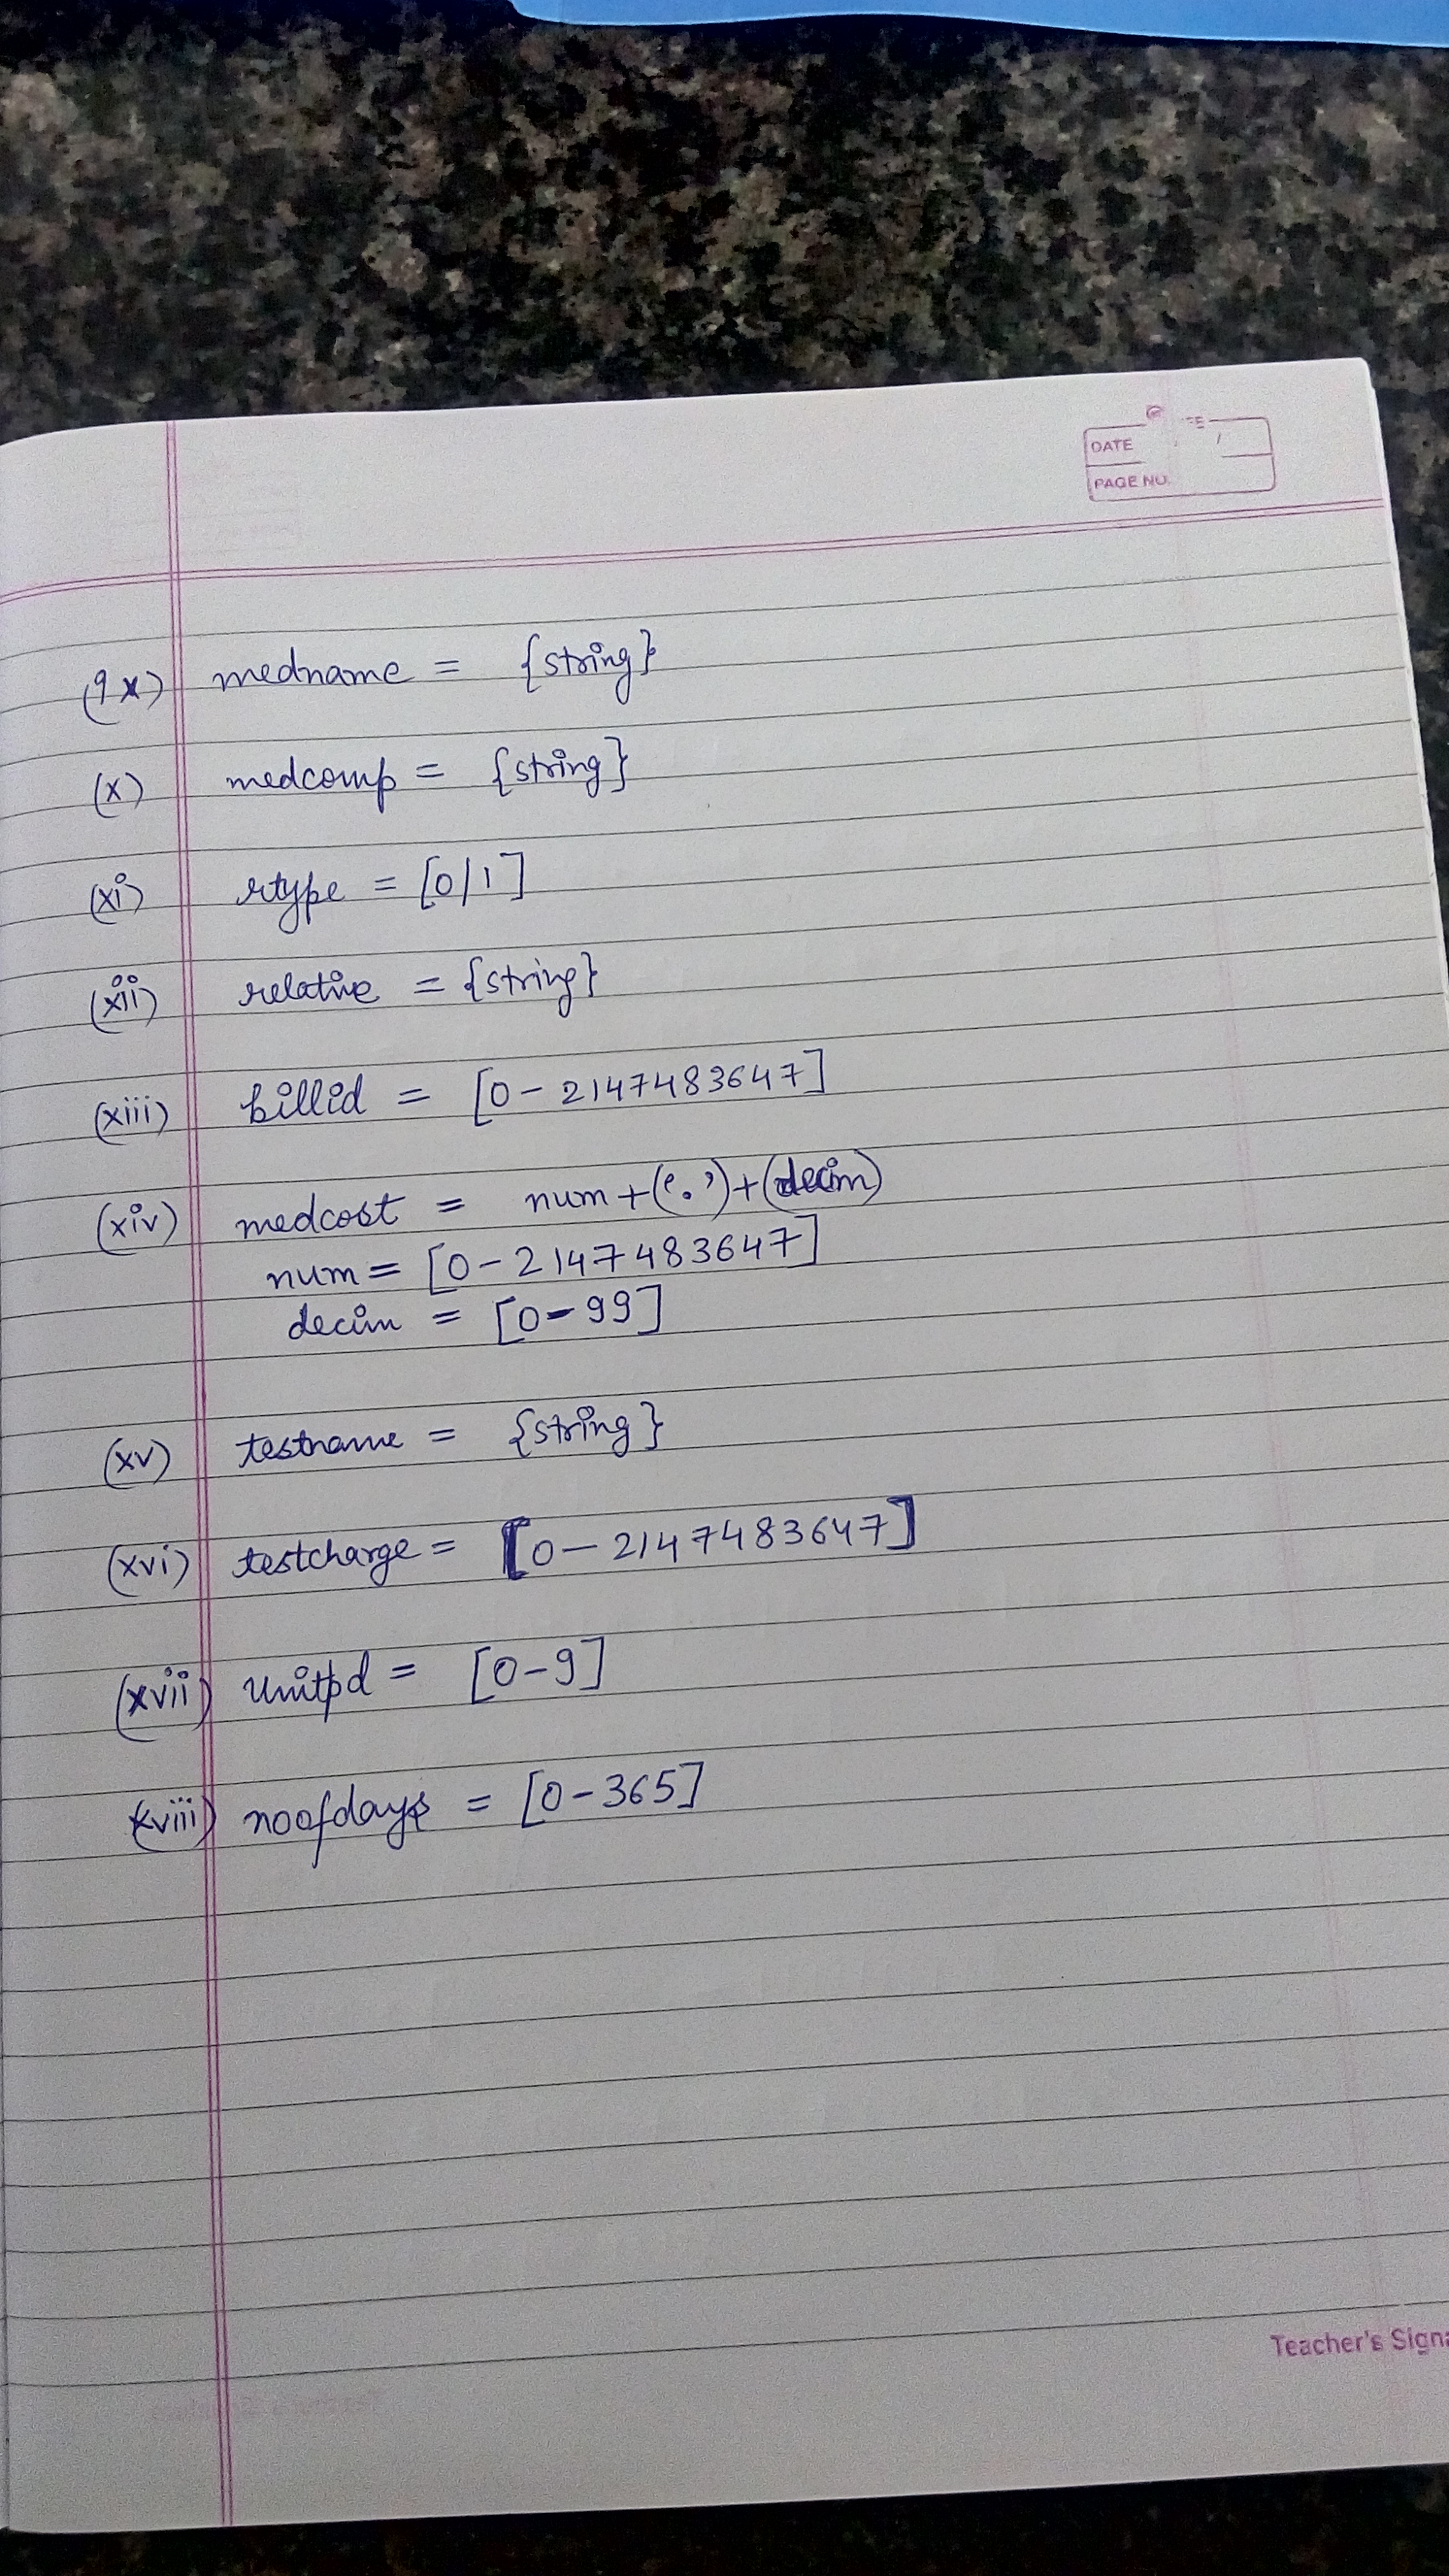 DATE
PAGE NO.
(ix) medname = {string}
(x) medcomp = {string}
(xi) rtype = [0/1]
(xii) relative = {string}
(xiii) billid = [0-2147483647]
(xiv) medcost = num+('.')+(decim)
num = [0-2147483647]
decim = [0-99]
(xv) testname = {string}
(xvi) testcharge = [0-2147483647]
(xvii) unitpd = [0-9]
(xviii) noofdays = [0-365]
Teacher's